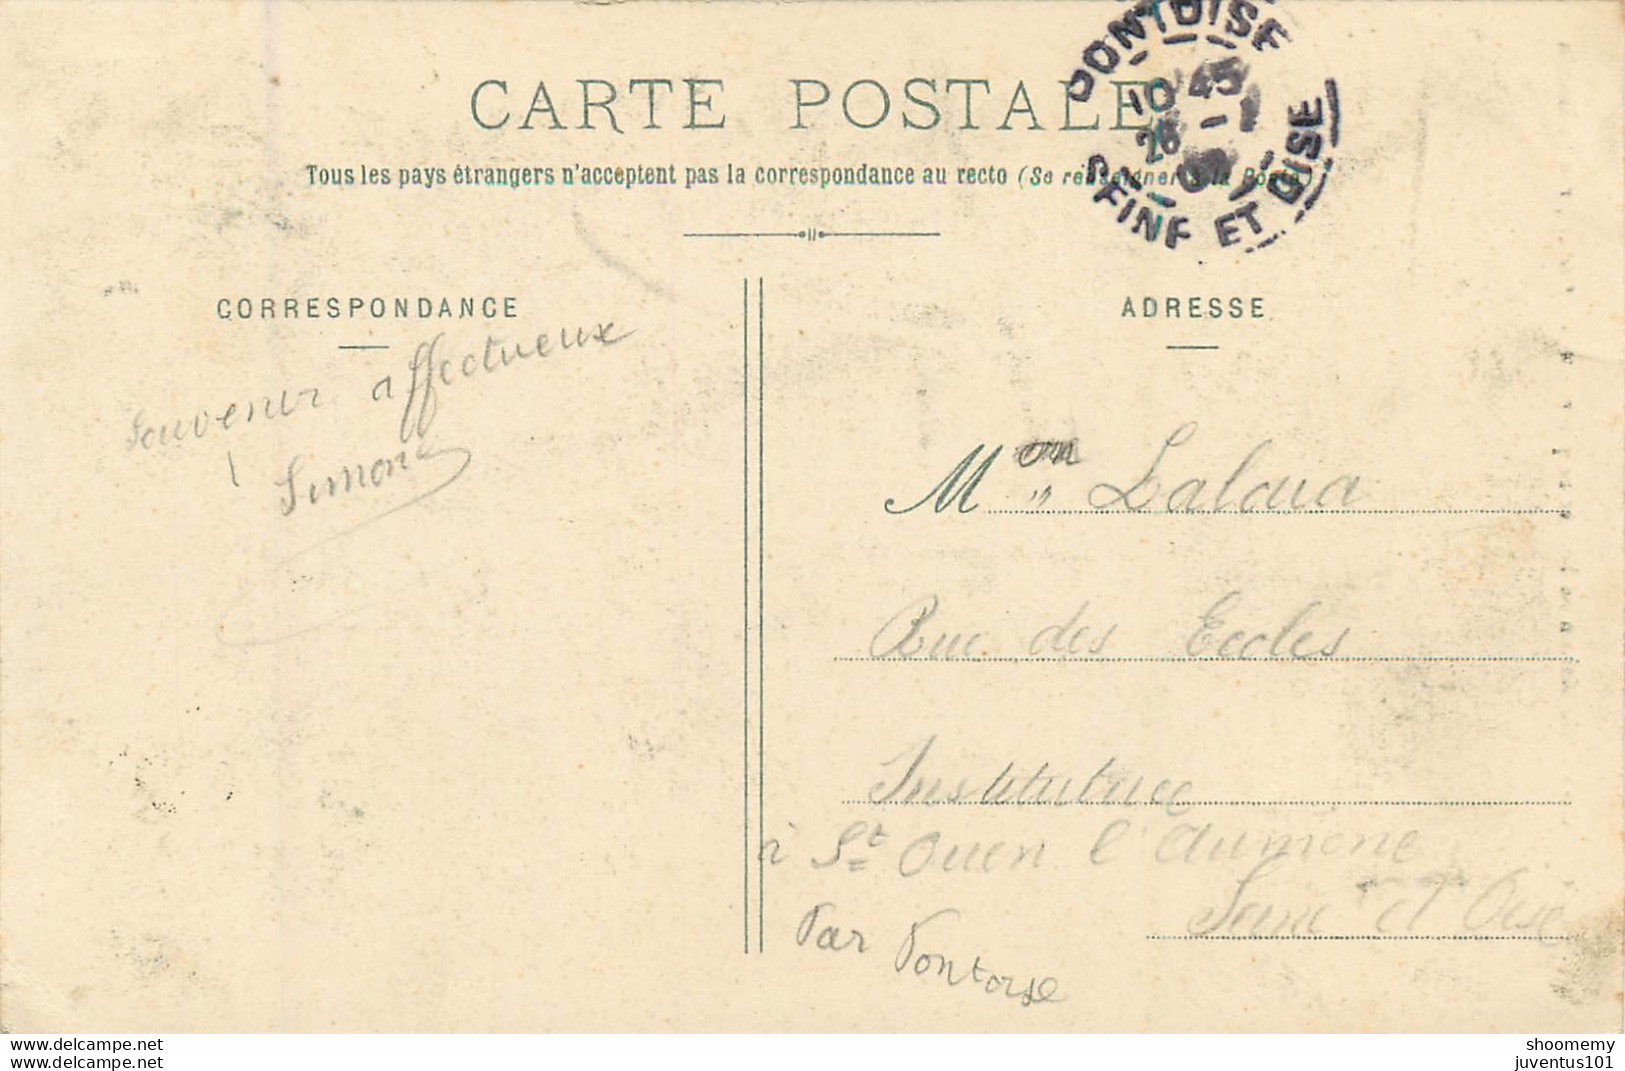 CARTE POSTALE
Tous les pays étrangers n'acceptent pas la correspondance au recto (Se renseigner à la Poste)
PONTOISE
10 45
26 - 1
SEINE ET OISE
CORRESPONDANCE
Souvenir affectueux
Simone
ADRESSE
M on Laloua
"
Rue des Ecoles
Institutrice
à St Ouen l'Aumone
Seine et Oise
Par Pontoise
www.delcampe.net
www.delcampe.net
shoomemy
juventus101